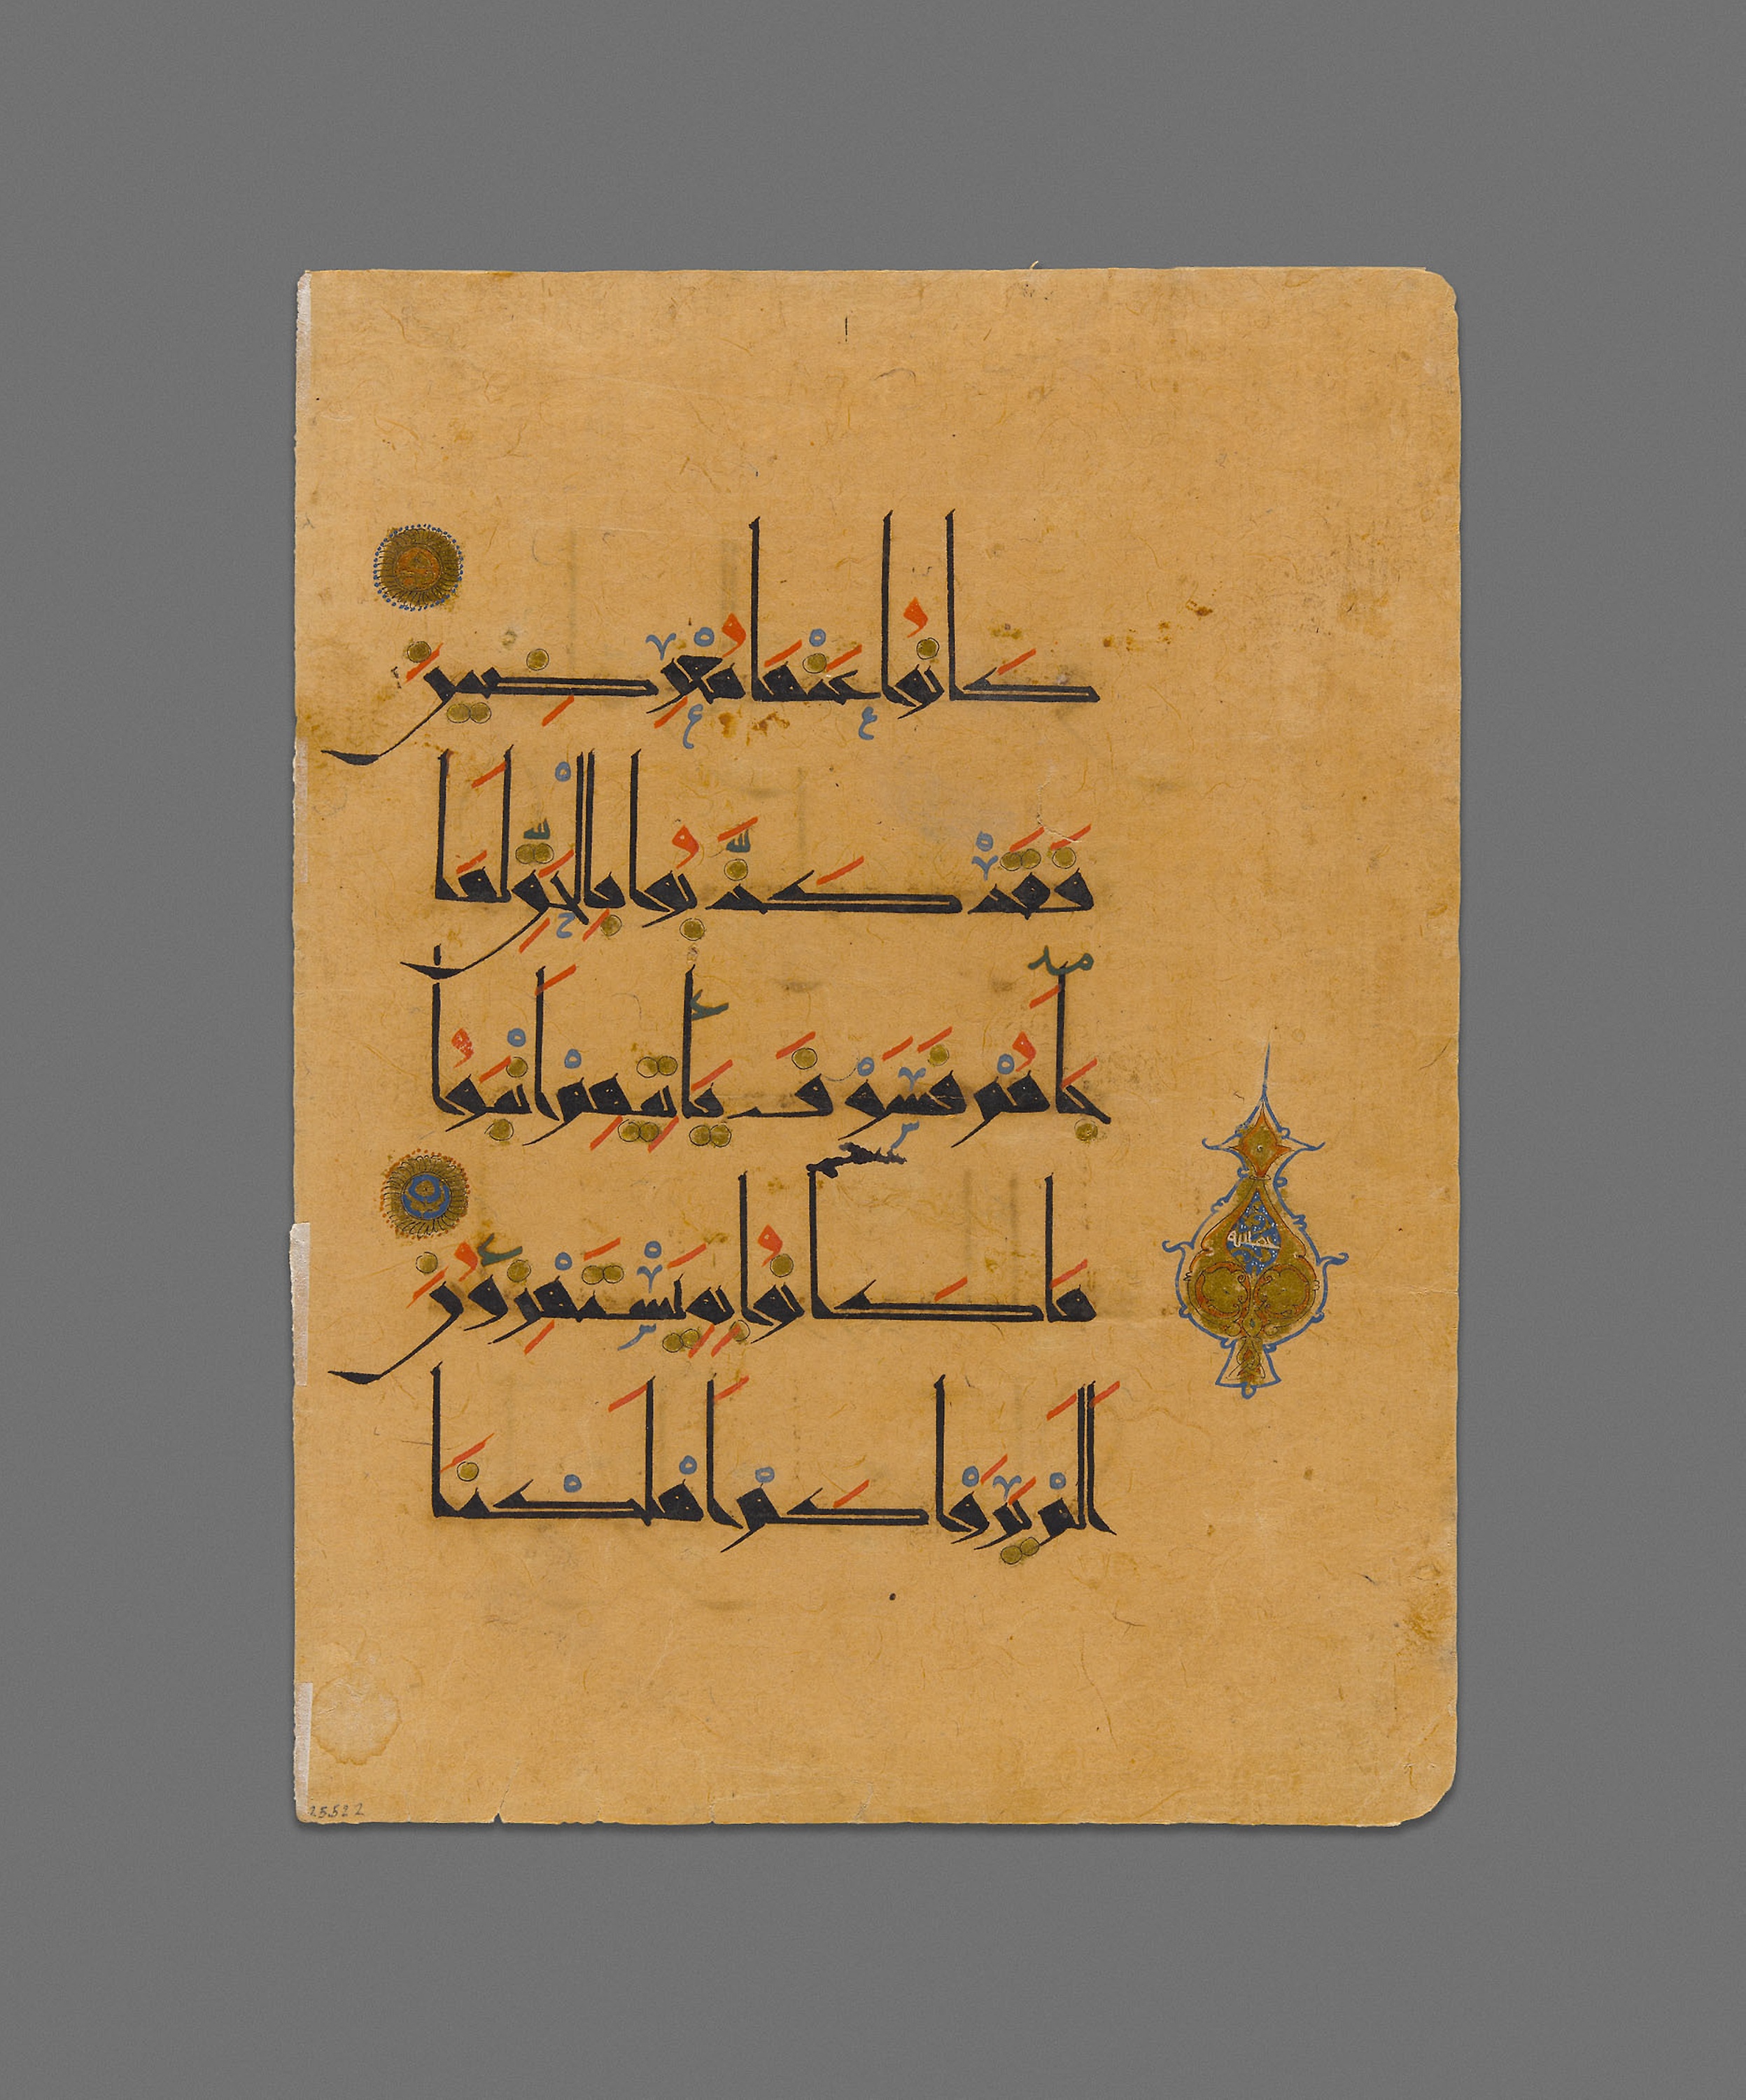 كَانُوا عَنْهَا مُعْرِضِينَ
فَقَدْ كَذَّبُوا بِالْحَقِّ لَمَّا
جَاهُمْ فَسَوْفَ يَاتِيهِمْ اَنْبَوُا
مَا كَانُوا بِهِ يَسْتَهْزِوُنَ
اَلَمْ يَرَوْا كَمْ اَهْلَكْنَا
خمسة
25.522